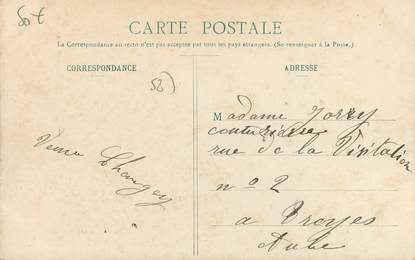 50 t
CARTE POSTALE
La Correspondance au recto n'est pas acceptée par tous les pays étrangers. (Se renseigner à la Poste.)
CORRESPONDANCE
ADRESSE
52)
Madame Jorry
couturière
rue de la Visitation
n° 2
a Troyes
Aube